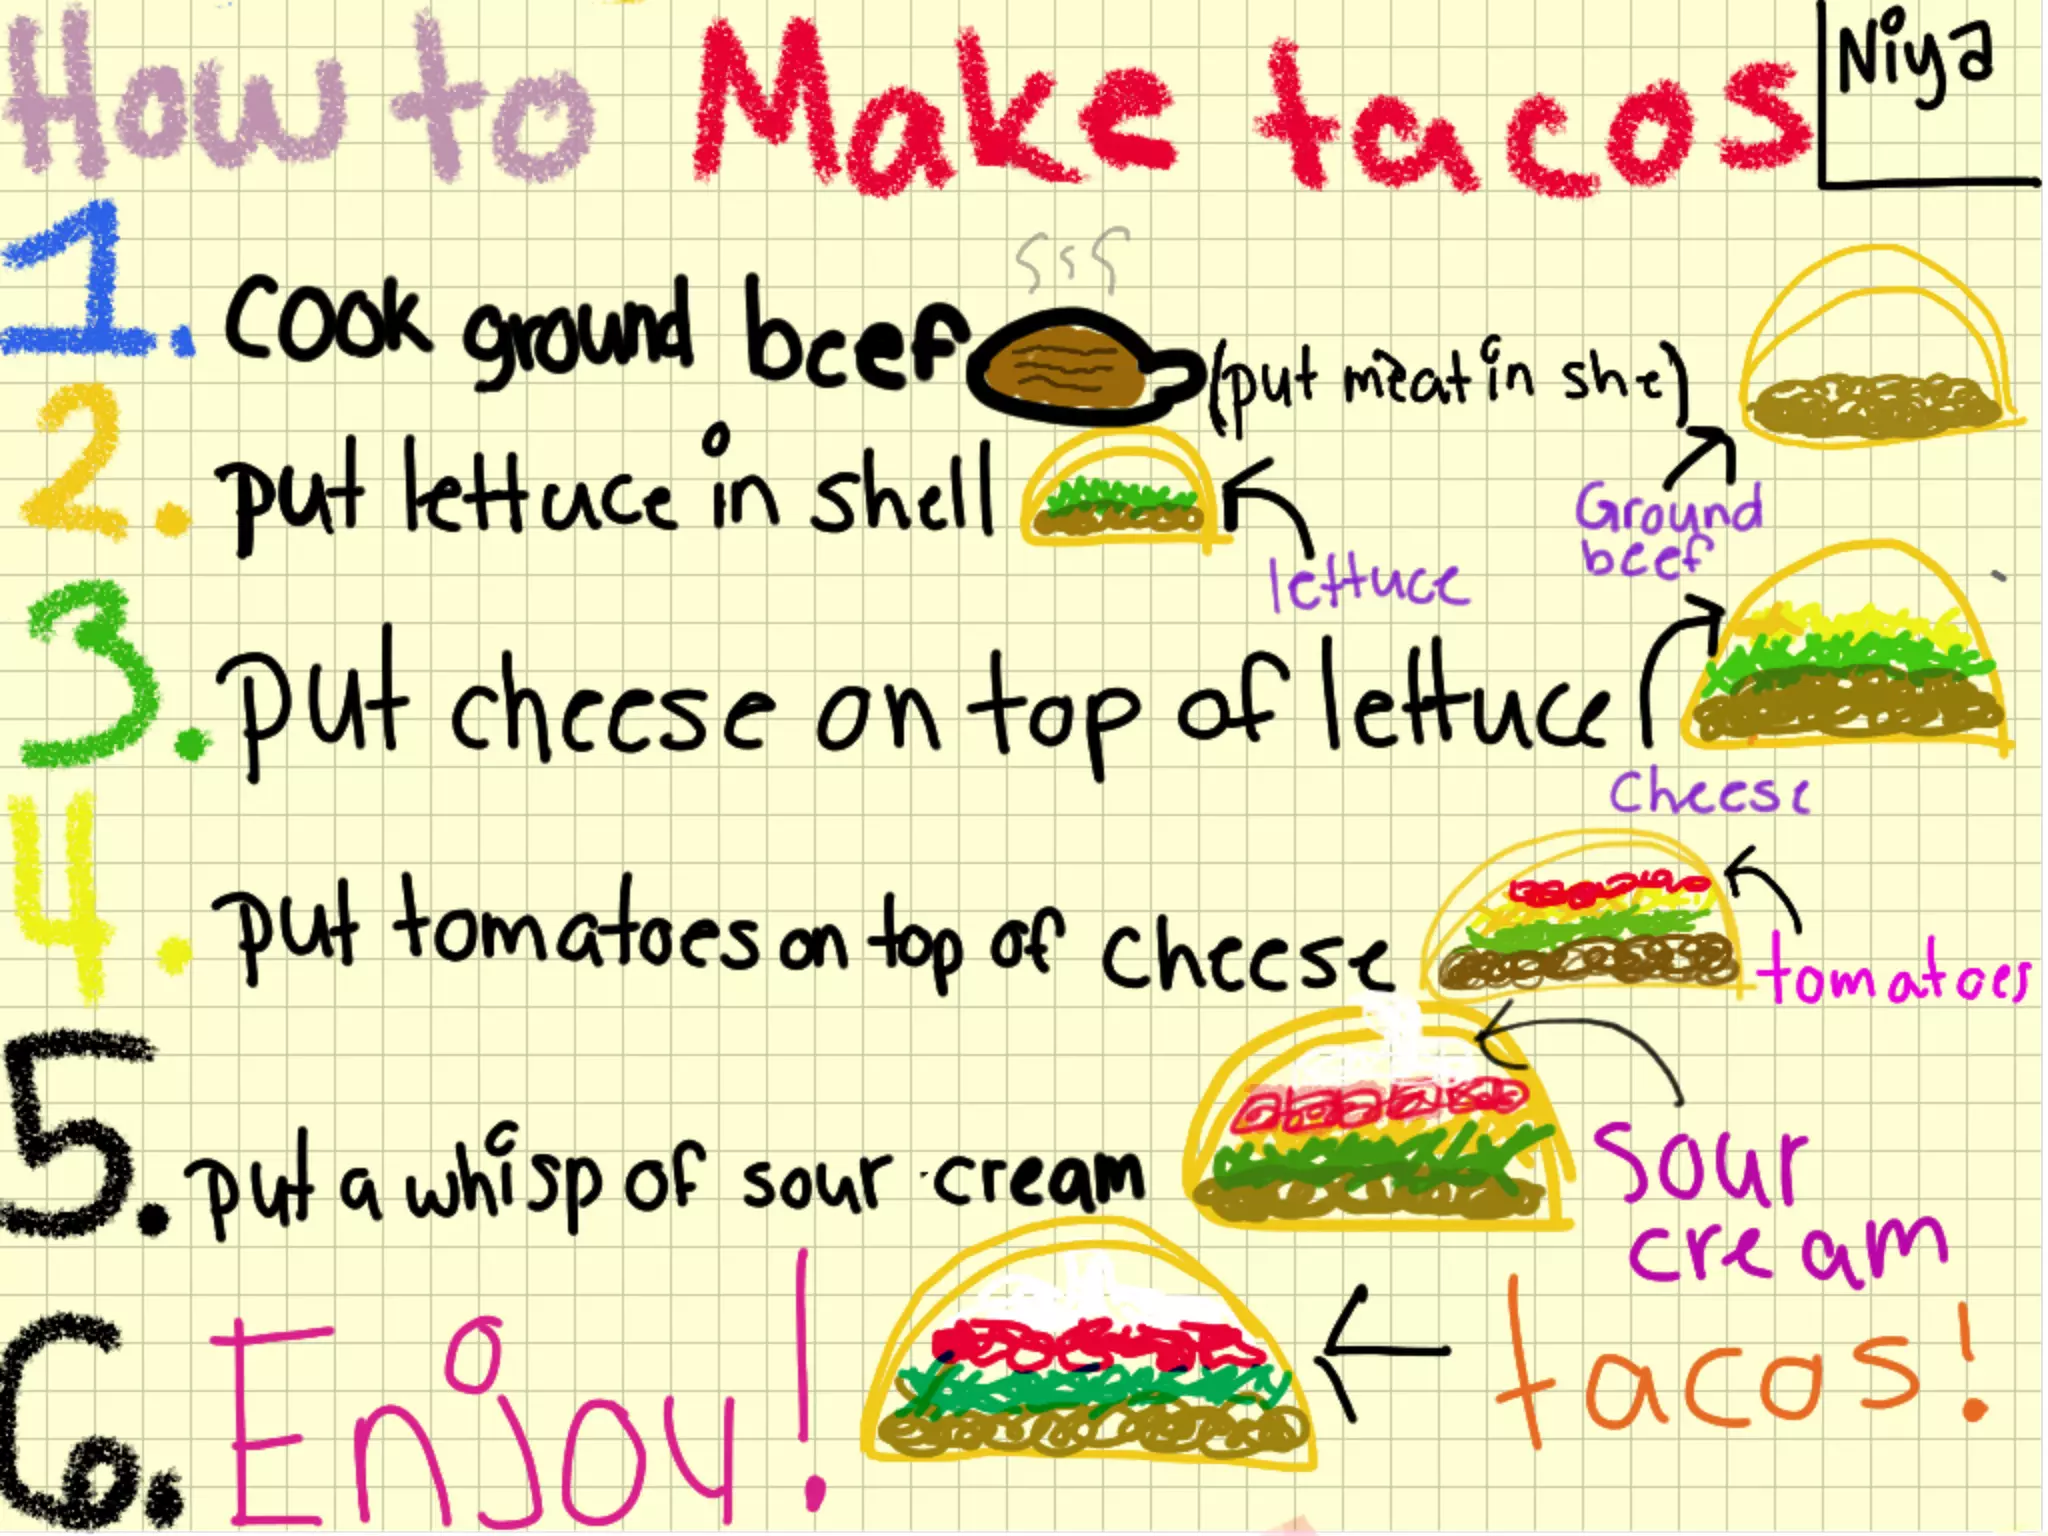 How to Make tacos
Niya
1. Cook ground beef (put meat in she)
Ground
beef
2. put lettuce in shell
lettuce
3. put cheese on top of lettuce
cheese
4. put tomatoes on top of cheese
tomatoes
5. put a whisp of sour cream
sour
cream
6. Enjoy!
tacos!